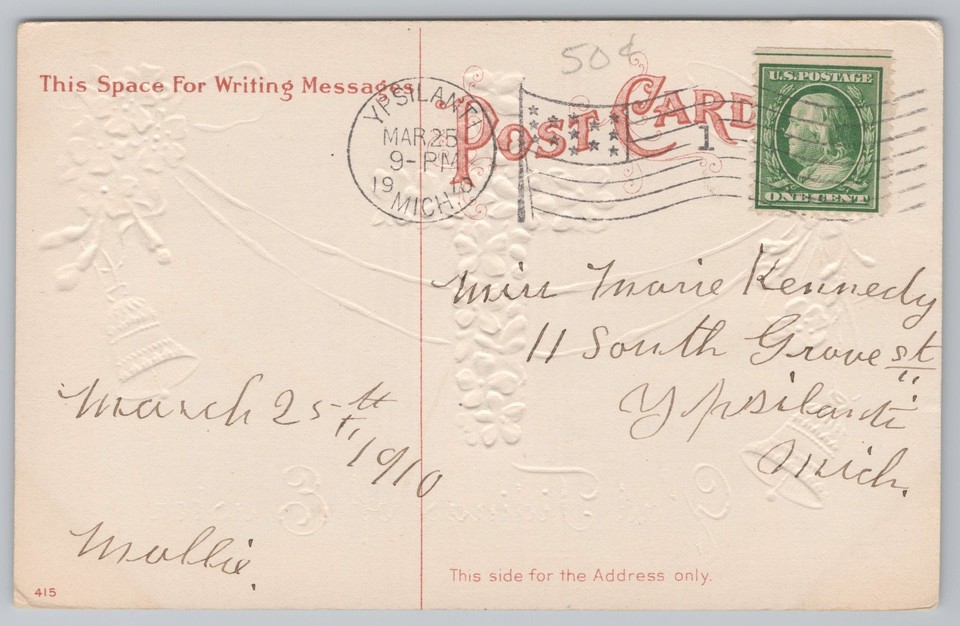 50¢
This Space For Writing Messages
POST CARD
YPSILANTI
MAR 25
9-PM
1910
MICH.
1
U.S. POSTAGE
ONE CENT
Miss Marie Kennedy
11 South Grove st
Ypsilanti
Mich.
March 25th
1910
Mollie.
This side for the Address only.
415